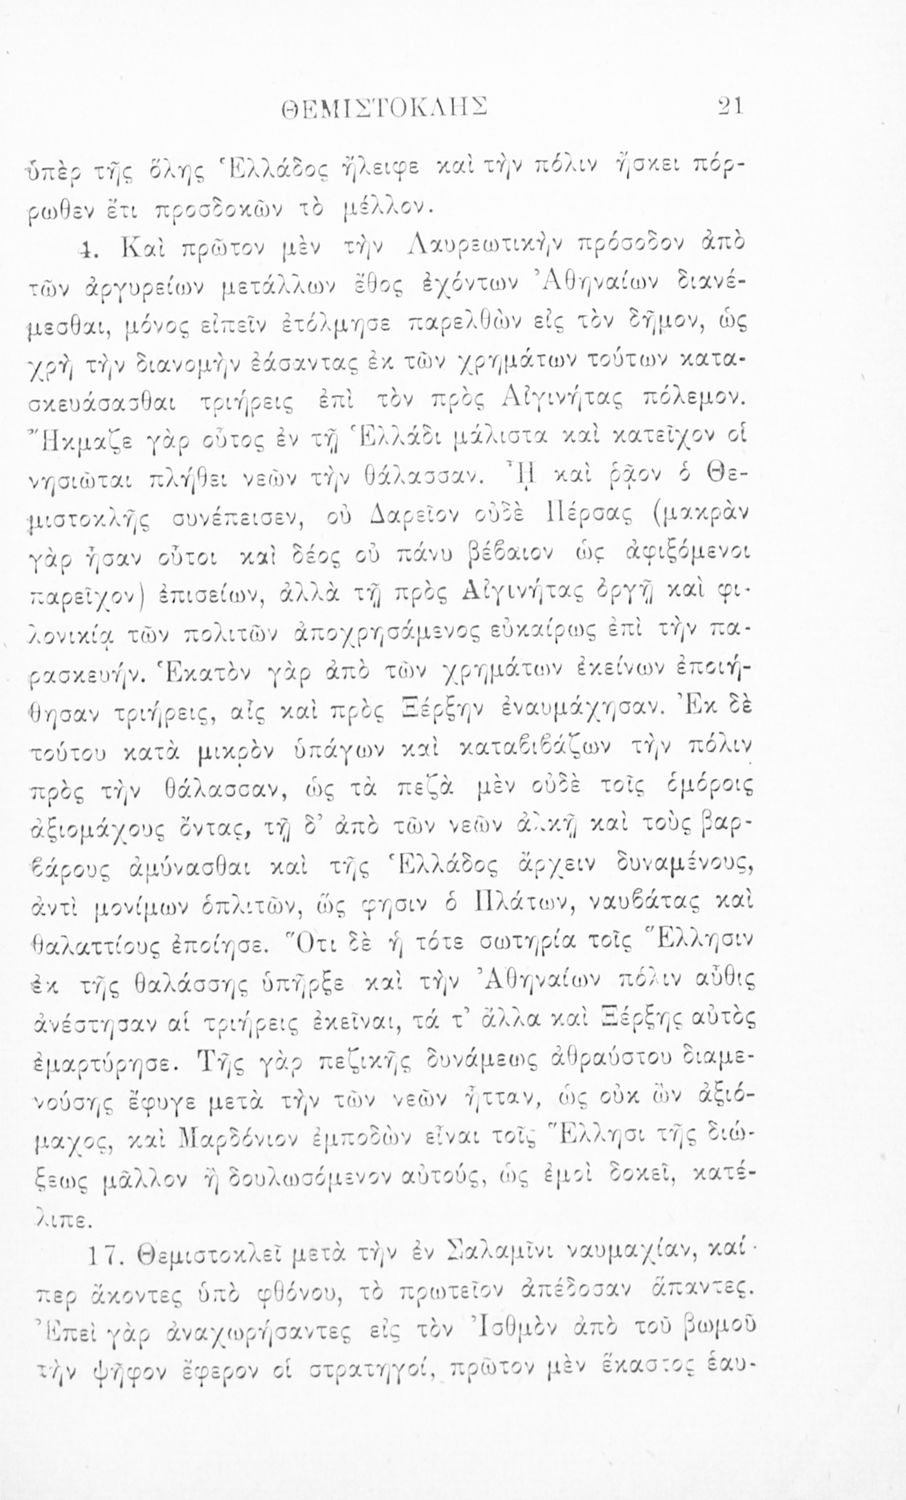 ΘΕΜΙΣΤΟΚΛΗΣ 21
ὑπὲρ τῆς ὅλης Ἑλλάδος ἤλειφε καὶ τὴν πόλιν ἤσκει πόρ-
ρωθεν ἔτι προσδοκῶν τὸ μέλλον.
4. Καὶ πρῶτον μὲν τὴν Λαυρεωτικὴν πρόσοδον ἀπὸ
τῶν ἀργυρείων μετάλλων ἔθος ἐχόντων Ἀθηναίων διανέ-
μεσθαι, μόνος εἰπεῖν ἐτόλμησε παρελθὼν εἰς τὸν δῆμον, ὡς
χρὴ τὴν διανομὴν ἐάσαντας ἐκ τῶν χρημάτων τούτων κατα-
σκευάσασθαι τριήρεις ἐπὶ τὸν πρὸς Αἰγινήτας πόλεμον.
Ἤκμαζε γὰρ οὗτος ἐν τῇ Ἑλλάδι μάλιστα καὶ κατεῖχον οἱ
νησιῶται πλήθει νεῶν τὴν θάλασσαν. Ἧι καὶ ῥᾷον ὁ Θε-
μιστοκλῆς συνέπεισεν, οὐ Δαρεῖον οὐδὲ Πέρσας (μακρὰν
γὰρ ἦσαν οὗτοι καὶ δέος οὐ πάνυ βέβαιον ὡς ἀφιξόμενοι
παρεῖχον) ἐπισείων, ἀλλὰ τῇ πρὸς Αἰγινήτας ὀργῇ καὶ φι-
λονικίᾳ τῶν πολιτῶν ἀποχρησάμενος εὐκαίρως ἐπὶ τὴν πα-
ρασκευήν. Ἑκατὸν γὰρ ἀπὸ τῶν χρημάτων ἐκείνων ἐποιή-
θησαν τριήρεις, αἷς καὶ πρὸς Ξέρξην ἐναυμάχησαν. Ἐκ δὲ
τούτου κατὰ μικρὸν ὑπάγων καὶ καταβιβάζων τὴν πόλιν
πρὸς τὴν θάλασσαν, ὡς τὰ πεζὰ μὲν οὐδὲ τοῖς ὁμόροις
ἀξιομάχους ὄντας, τῇ δ’ ἀπὸ τῶν νεῶν ἀλκῇ καὶ τοὺς βαρ-
βάρους ἀμύνασθαι καὶ τῆς Ἑλλάδος ἄρχειν δυναμένους,
ἀντὶ μονίμων ὁπλιτῶν, ὥς φησιν ὁ Πλάτων, ναυβάτας καὶ
θαλαττίους ἐποίησε. Ὅτι δὲ ἡ τότε σωτηρία τοῖς Ἕλλησιν
ἐκ τῆς θαλάσσης ὑπῆρξε καὶ τὴν Ἀθηναίων πόλιν αὖθις
ἀνέστησαν αἱ τριήρεις ἐκεῖναι, τά τ’ ἄλλα καὶ Ξέρξης αὐτὸς
ἐμαρτύρησε. Τῆς γὰρ πεζικῆς δυνάμεως ἀθραύστου διαμε-
νούσης ἔφυγε μετὰ τὴν τῶν νεῶν ἧτταν, ὡς οὐκ ὢν ἀξιό-
μαχος, καὶ Μαρδόνιον ἐμποδὼν εἶναι τοῖς Ἕλλησι τῆς διώ-
ξεως μᾶλλον ἢ δουλωσόμενον αὐτούς, ὡς ἐμοὶ δοκεῖ, κατέ-
λιπε.
17. Θεμιστοκλεῖ μετὰ τὴν ἐν Σαλαμῖνι ναυμαχίαν, καί-
περ ἄκοντες ὑπὸ φθόνου, τὸ πρωτεῖον ἀπέδοσαν ἅπαντες.
Ἐπεὶ γὰρ ἀναχωρήσαντες εἰς τὸν Ἰσθμὸν ἀπὸ τοῦ βωμοῦ
τὴν ψῆφον ἔφερον οἱ στρατηγοί, πρῶτον μὲν ἕκαστος ἑαυ-